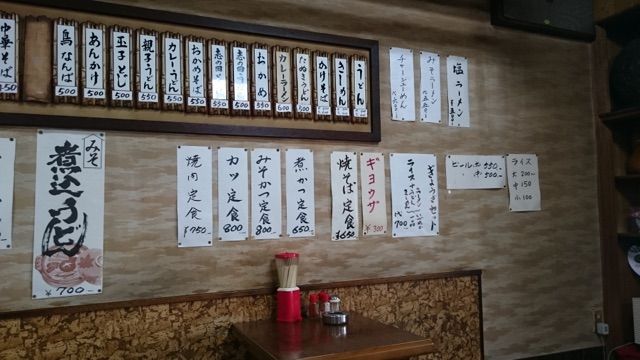 中華そば
鳥なんば
550
あんかけ
500
玉子とじ
500
親子うどん
550
カレーうどん
550
おかめそば
500
志の田
550
おかめ
500
カレーラーメン
たぬきうどん
かけそば
きしめん
うどん
塩ラーメン
みそラーメン
チャーシューめん
みそ
煮込うどん
¥700-
焼肉定食
¥750
カツ定食
800
みそかつ定食
800
煮かつ定食
650
焼そば定食
¥650
ギョウザ
¥300
ぎょうざセット
ライス
700
ビール 大 550-
中 500-
ライス
大 200-
中 150
小 100